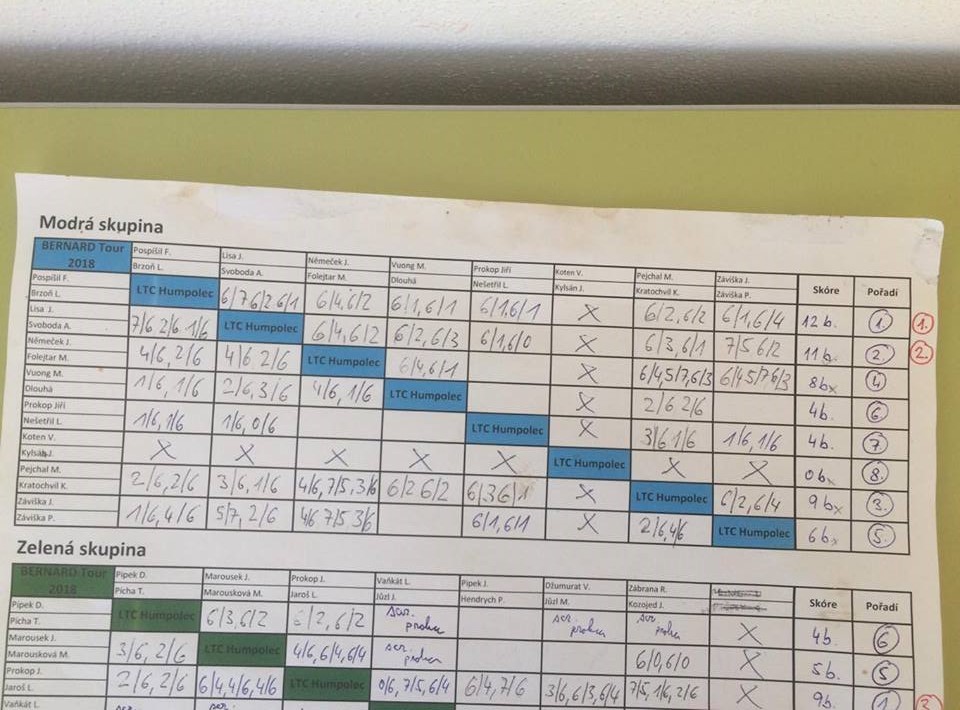 Modrá skupina
BERNARD Tour 2018 Pospíšil F. Lisa J. Němeček J. Vuong M. Prokop Jiří Koten V. Pejchal M. Záviška J. Skóre Pořadí
Brzoň L. Svoboda A. Folejtar M. Dlouhá Nešetřil L. Kylsán J. Kratochvil K. Záviška P.
Pospíšil F. Brzoň L. LTC Humpolec 6/7 6/2 6/1 6/4, 6/2 6/1, 6/1 6/1, 6/1 X 6/2, 6/2 6/1, 6/4 12 b. 1. 1.
Lisa J. Svoboda A. 7/6 2/6 1/6 LTC Humpolec 6/4, 6/2 6/2, 6/3 6/1, 6/0 X 6/3, 6/1 7/5 6/2 11 b. 2. 2.
Němeček J. Folejtar M. 4/6, 2/6 4/6 2/6 LTC Humpolec 6/4, 6/1 X 6/4, 5/7, 6/3 6/4 5/7 6/3 8 b x 4
Vuong M. Dlouhá 1/6, 1/6 2/6, 3/6 4/6, 1/6 LTC Humpolec X 2/6 2/6 4 b. 6.
Prokop Jiří Nešetřil L. 1/6, 1/6 1/6, 0/6 LTC Humpolec X 3/6 1/6 1/6, 1/6 4 b. 7.
Koten V. Kylsán J. X X X X X LTC Humpolec X X 0 b x 8.
Pejchal M. Kratochvil K. 2/6, 2/6 3/6, 1/6 4/6, 7/5, 3/6 6/2 6/2 6/3 6/1 X LTC Humpolec 6/2, 6/4 9 b x 3.
Záviška J. Záviška P. 1/6, 4/6 5/7, 2/6 4/6 7/5 3/6 6/1, 6/1 X 2/6, 4/6 LTC Humpolec 6 b x 5.
Zelená skupina
BERNARD Tour 2018 Pipek D. Marousek J. Prokop J. Vaňkát L. Pipek J. Džumurat V. Zábrana R. Skóre Pořadí
Pícha T. Marousková M. Jaroš L. Jůzl J. Hendrych P. Jůzl M. Kozojed J.
Pipek D. Pícha T. LTC Humpolec 6/3, 6/2 6/2, 6/2 scr. prohra scr. prohra scr. prohra X 4 b. 6
Marousek J. Marousková M. 3/6, 2/6 LTC Humpolec 4/6, 6/4, 6/4 scr. prohra 6/0, 6/0 X 5 b. 5
Prokop J. Jaroš L. 2/6, 2/6 6/4, 4/6, 4/6 LTC Humpolec 0/6, 7/5, 6/4 6/4, 7/6 3/6, 6/3, 6/4 7/5, 1/6, 2/6 X 9 b. 1
Vaňkát L. scr. scr.